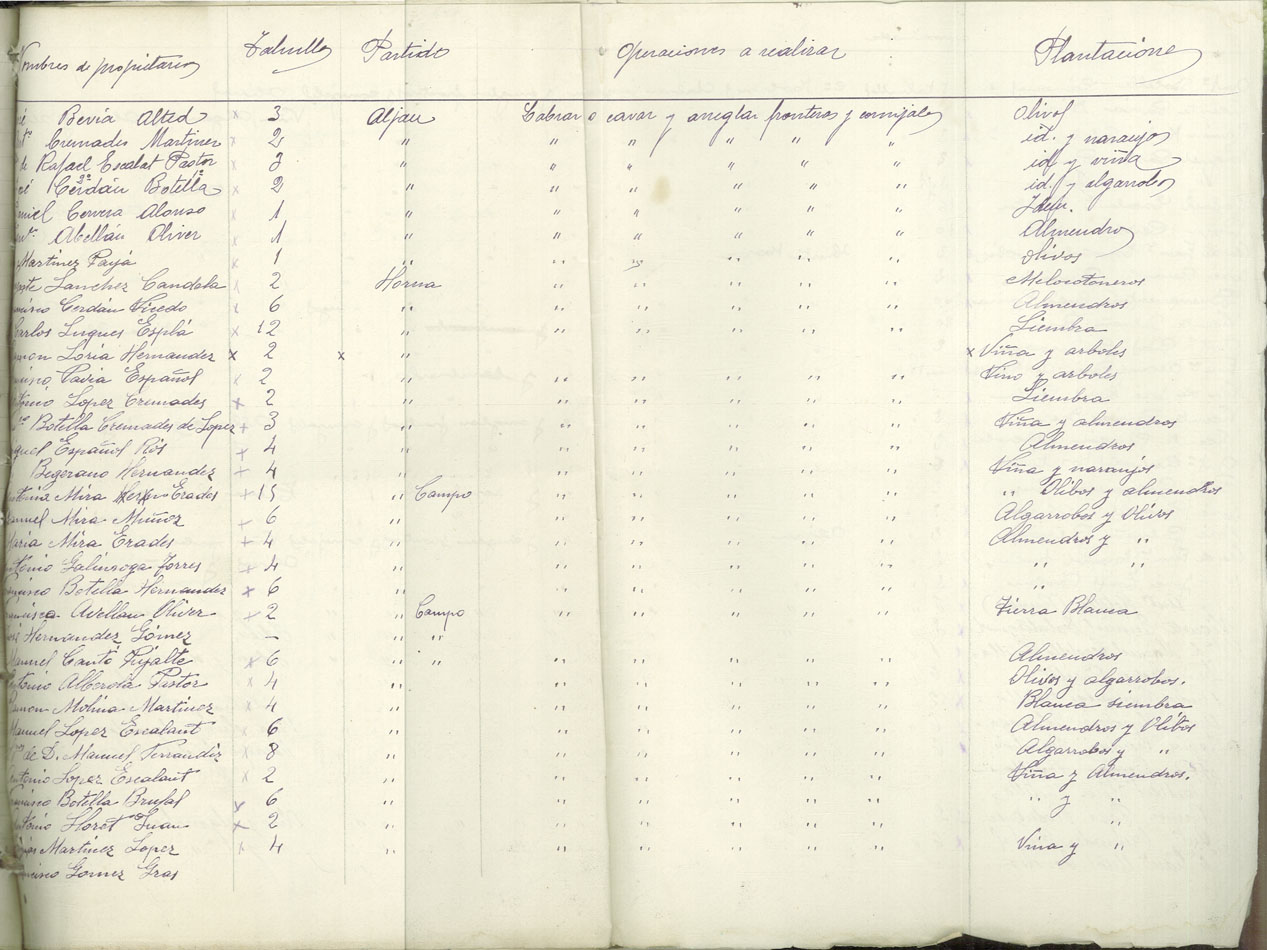 Nombres de propietarios Tahullas Partido Operaciones a realizar Plantaciones
Bevia Altid x 3 Aljau Labrar o cavar y arreglar fronteros y cornijales Olivos
Cremades Martinez x 2 " " " " " " id. y naranjos
Rafael Escalat Pastor x 3 " " " " " " id y viña
Cerdán Botella x 2 " " " " " " id. y algarrobos
Cervera Alonso x 1 " " " " " " Idem.
Abellán Oliver x 1 " " " " " " Almendro
Martinez Payá x 1 " " " " " " Olivos
Sanchez Candela x 2 Horna " " " " " Melocotoneros
Cerdán Vicedo x 6 " " " " " " Almendros
Carlos Luques Esplá x 12 " " " " " " Siembra
Loria Hernandez x 2 x " " " " " " x Viña y arboles
Pavia Español x 2 " " " " " " Vino y arboles
Antonio Lopez Cremades x 2 " " " " " " Siembra
Botella Cremades de Lopez + 3 " " " " " " Viña y almendros
Español Ros + 4 " " " " " " Almendros
Begerano Hernandez + 4 " " " " " " Viña y naranjos
Mira Erades + 15 " Campo " " " " " " Olibos y almendros
Manuel Mira Muñoz + 6 " " " " " " Algarrobos y Olivos
Maria Mira Erades + 4 " " " " " " Almendros y "
Antonio Galinsoga Torres + 4 " " " " " " " "
Botella Hernandez x 6 " " " " " " "
Avellan Oliver x 2 " Campo " " " " " Tierra Blanca
Hernandez Gómez – " "
Manuel Cantó Pujalte x 6 " " " " " " " Almendros
Antonio Alberola Pastor x 4 " " " " " " Olivos y algarrobos.
Ramon Molina Martinez x 4 " " " " " " Blanca siembra
Manuel Lopez Escalant x 6 " " " " " " Almendros y Olibos
de D. Manuel Ferrandiz x 8 " " " " " " Algarrobos y "
Antonio Lopez Escalant x 2 " " " " " " Viña y Almendros.
Botella Brufal x 6 " " " " " " " y "
Antonio Lloret Juan x 2 " " " " " " "
Martinez Lopez x 4 " " " " " " Viña y "
Gomez Gras